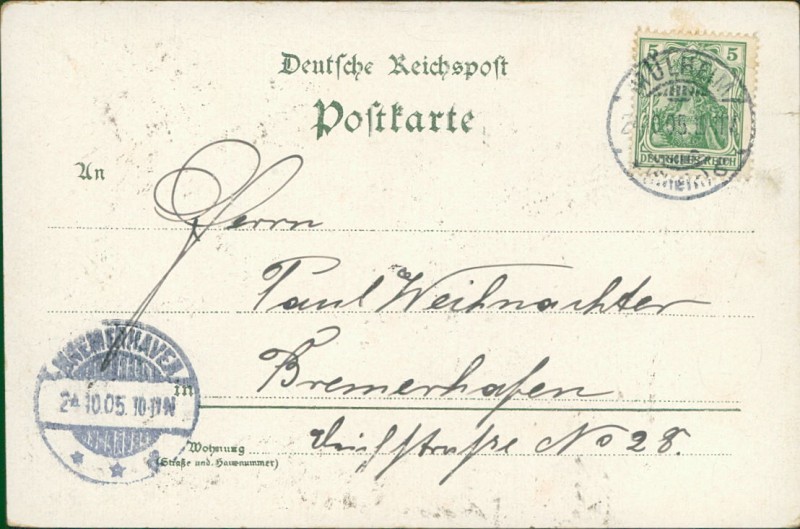 Deutsche Reichspost
Postkarte
5 5
DEUTSCHES REICH
MÜLHEIM
An
Herrn
Paul Weihnachter
in Bremerhafen
Wohnung
(Straße und Hausnummer)
Deichstraße No 28.
BREMERHAVEN
24.10.05. 10-11N